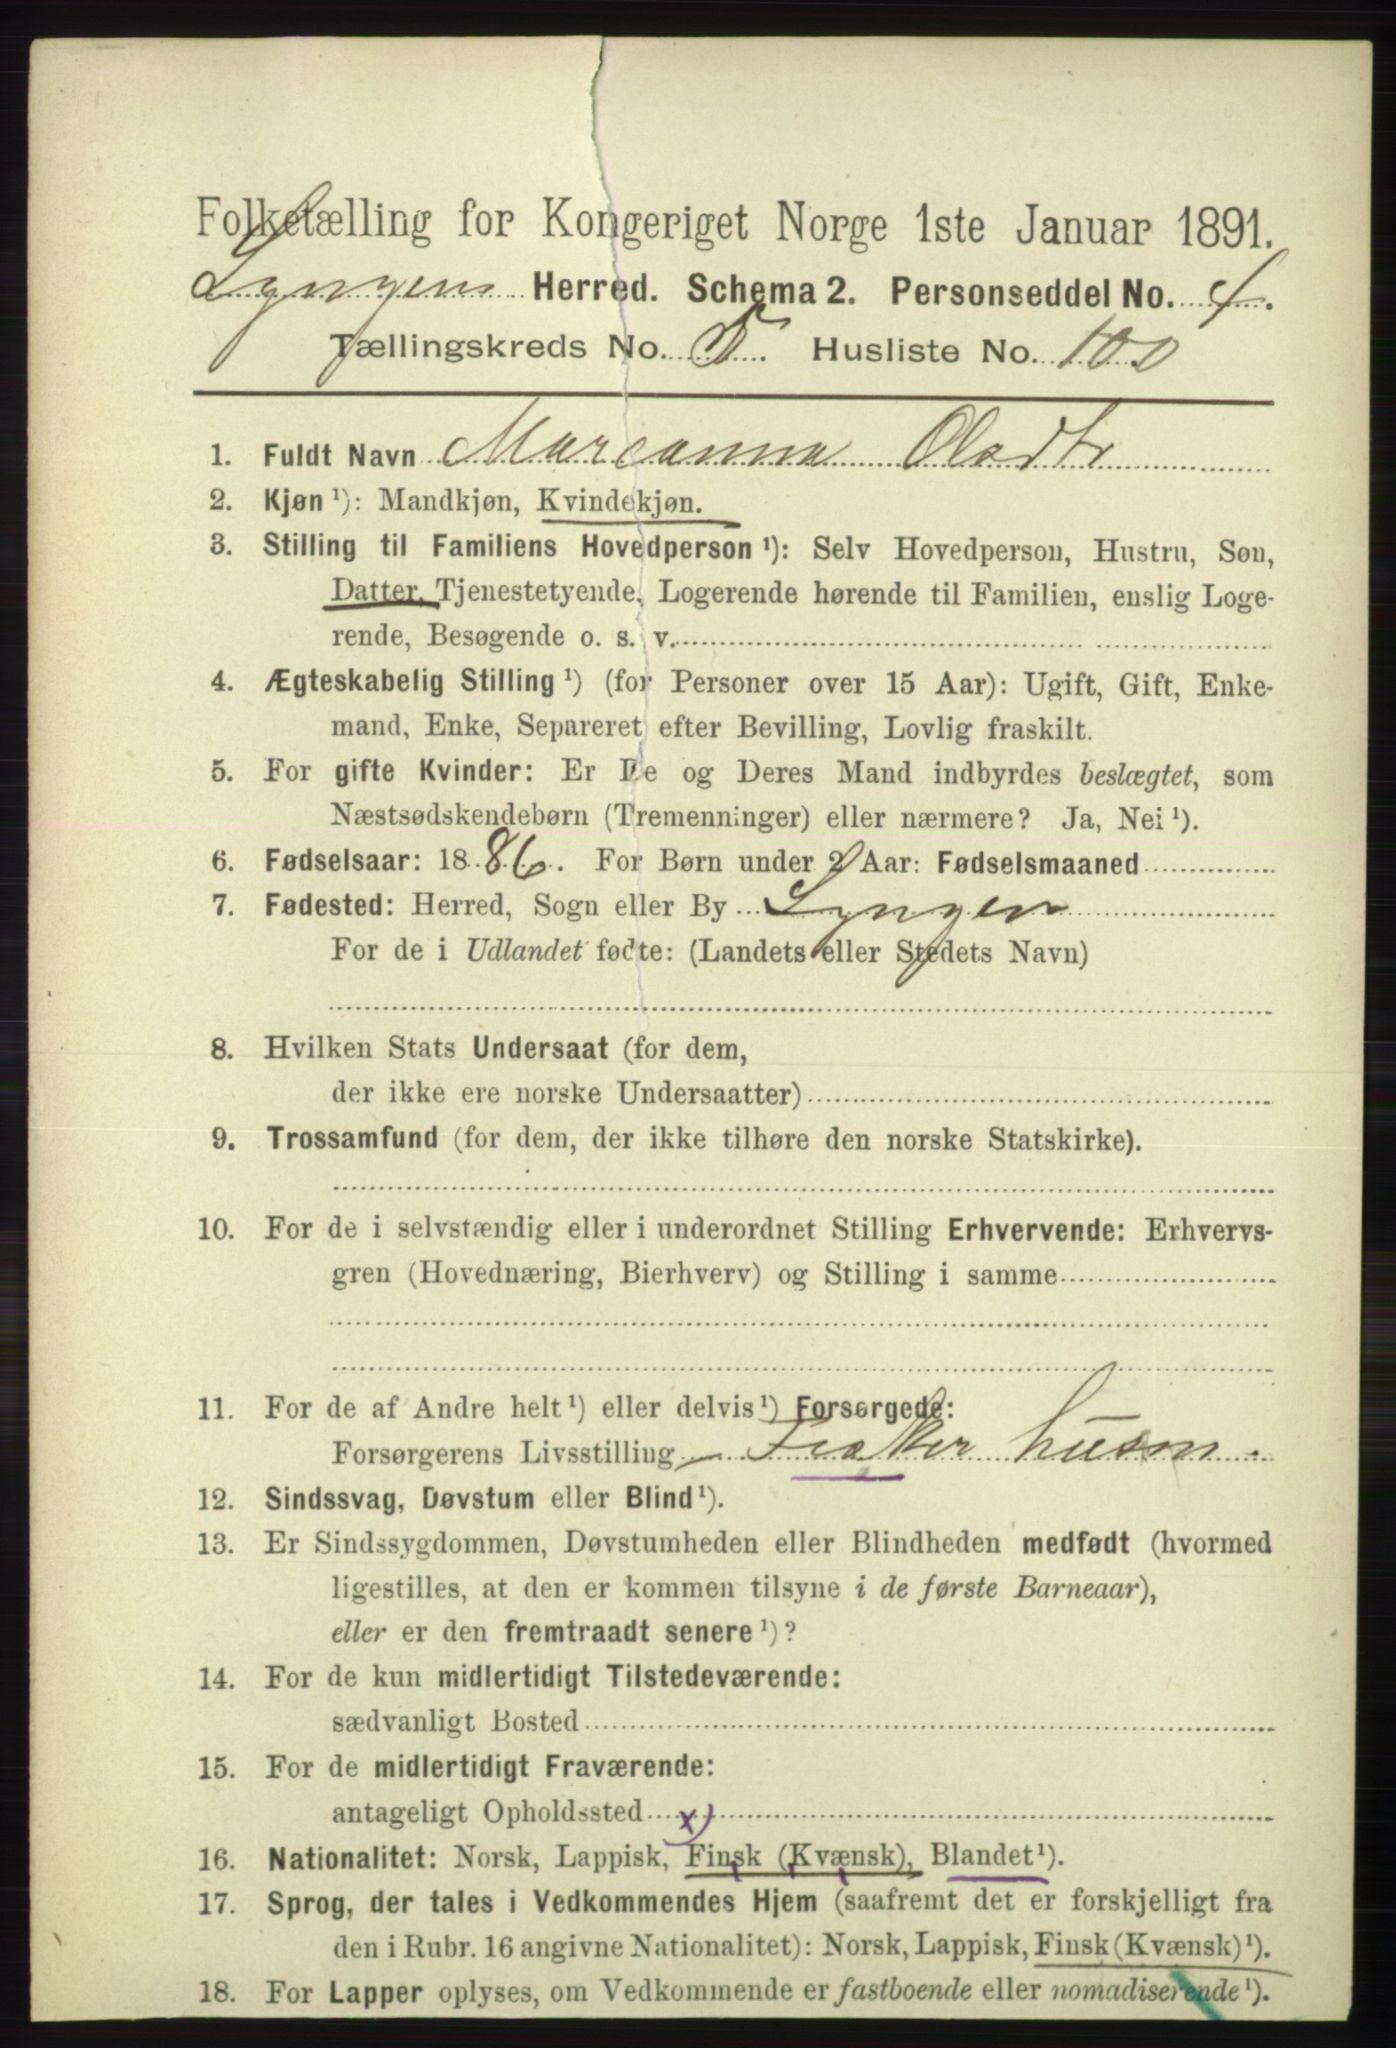 Folketælling for Kongeriget Norge 1ste Januar 1891.
Lyngens Herred. Schema 2. Personseddel No. 4.
Tællingskreds No. 5. Husliste No. 100
1. Fuldt Navn Mareanna Olsdtr
2. Kjøn ¹): Mandkjøn, Kvindekjøn.
3. Stilling til Familiens Hovedperson ¹): Selv Hovedperson, Hustru, Søn,
Datter, Tjenestetyende, Logerende hørende til Familien, enslig Loge-
rende, Besøgende o. s. v.
4. Ægteskabelig Stilling ¹) (for Personer over 15 Aar): Ugift, Gift, Enke-
mand, Enke, Separeret efter Bevilling, Lovlig fraskilt.
5. For gifte Kvinder: Er De og Deres Mand indbyrdes beslægtet, som
Næstsødskendebørn (Tremenninger) eller nærmere? Ja, Nei ¹).
6. Fødselsaar: 1886. For Børn under 2 Aar: Fødselsmaaned
7. Fødested: Herred, Sogn eller By Lyngen
For de i Udlandet fødte: (Landets eller Stedets Navn)
8. Hvilken Stats Undersaat (for dem,
der ikke ere norske Undersaatter)
9. Trossamfund (for dem, der ikke tilhøre den norske Statskirke).
10. For de i selvstændig eller i underordnet Stilling Erhvervende: Erhvervs-
gren (Hovednæring, Bierhverv) og Stilling i samme
11. For de af Andre helt ¹) eller delvis ¹) Forsørgede:
Forsørgerens Livsstilling Fisker husm.
12. Sindssvag, Døvstum eller Blind ¹).
13. Er Sindssygdommen, Døvstumheden eller Blindheden medfødt (hvormed
ligestilles, at den er kommen tilsyne i de første Barneaar),
eller er den fremtraadt senere ¹)?
14. For de kun midlertidigt Tilstedeværende:
sædvanligt Bosted
15. For de midlertidigt Fraværende:
antageligt Opholdssted x)
16. Nationalitet: Norsk, Lappisk, Finsk (Kvænsk), Blandet ¹).
17. Sprog, der tales i Vedkommendes Hjem (saafremt det er forskjelligt fra
den i Rubr. 16 angivne Nationalitet): Norsk, Lappisk, Finsk (Kvænsk) ¹).
18. For Lapper oplyses, om Vedkommende er fastboende eller nomadiserende ¹).